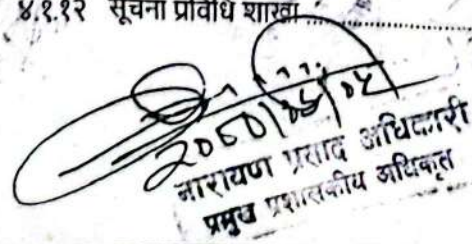 ४.१.१२ सूचना प्रविधि शाखा ....................
नारायण प्रसाद अधिकारी
प्रमुख प्रशासकीय अधिकृत